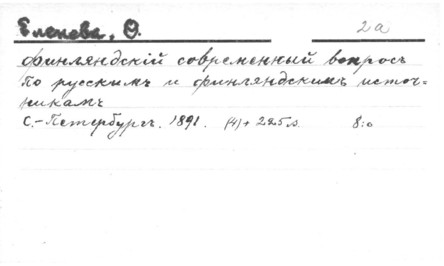 Еленева, Ѳ. 2a
Финляндскій современный вопросъ
по русскимъ и финляндскимъ источ=
никамъ
С.-Петербургъ. 1891. (4) + 225 s. 8:o